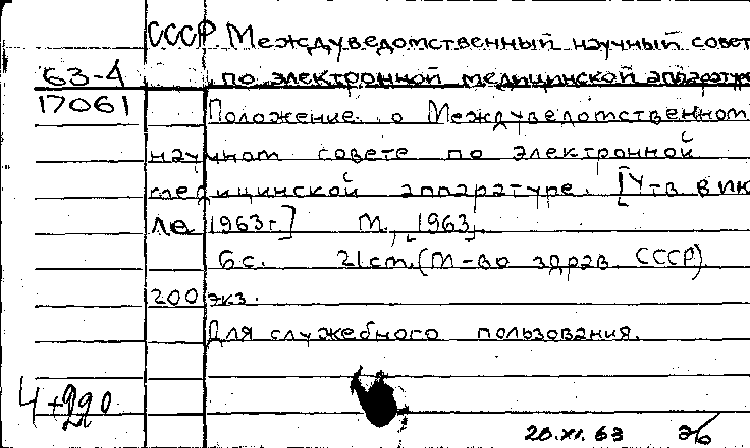 СССР Междуведомственный научный совет
63-4 по электронной медицинской аппаратуре
17061 Положение о Междуведомственном
научном совете по электронной
медицинской аппаратуре. [Утв в ию
ле 1963г.] М., [1963].
6с. 21cm. (М-во здрав. СССР)
200 экз.
Для служебного пользования.
4+220
20.XI.63